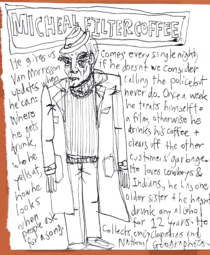 MICHEAL FILTER COFFEE
He gives us
Van Morrison
updates when
he can:
Where
he gets
drunk,
who he
yells at,
how he
looks
when
people ask
for a song.
comes every single night,
if he doesn't we consider
calling the police but
never do. Once a week
he treats himself to
a film, otherwise he
drinks his coffee +
clears off the other
customers' garbage.
He loves cowboys &
Indians, he has one
older sister + he hasn't
drunk any alcohol
for 12 years. He
collects encyclopedias and
National Geographics.